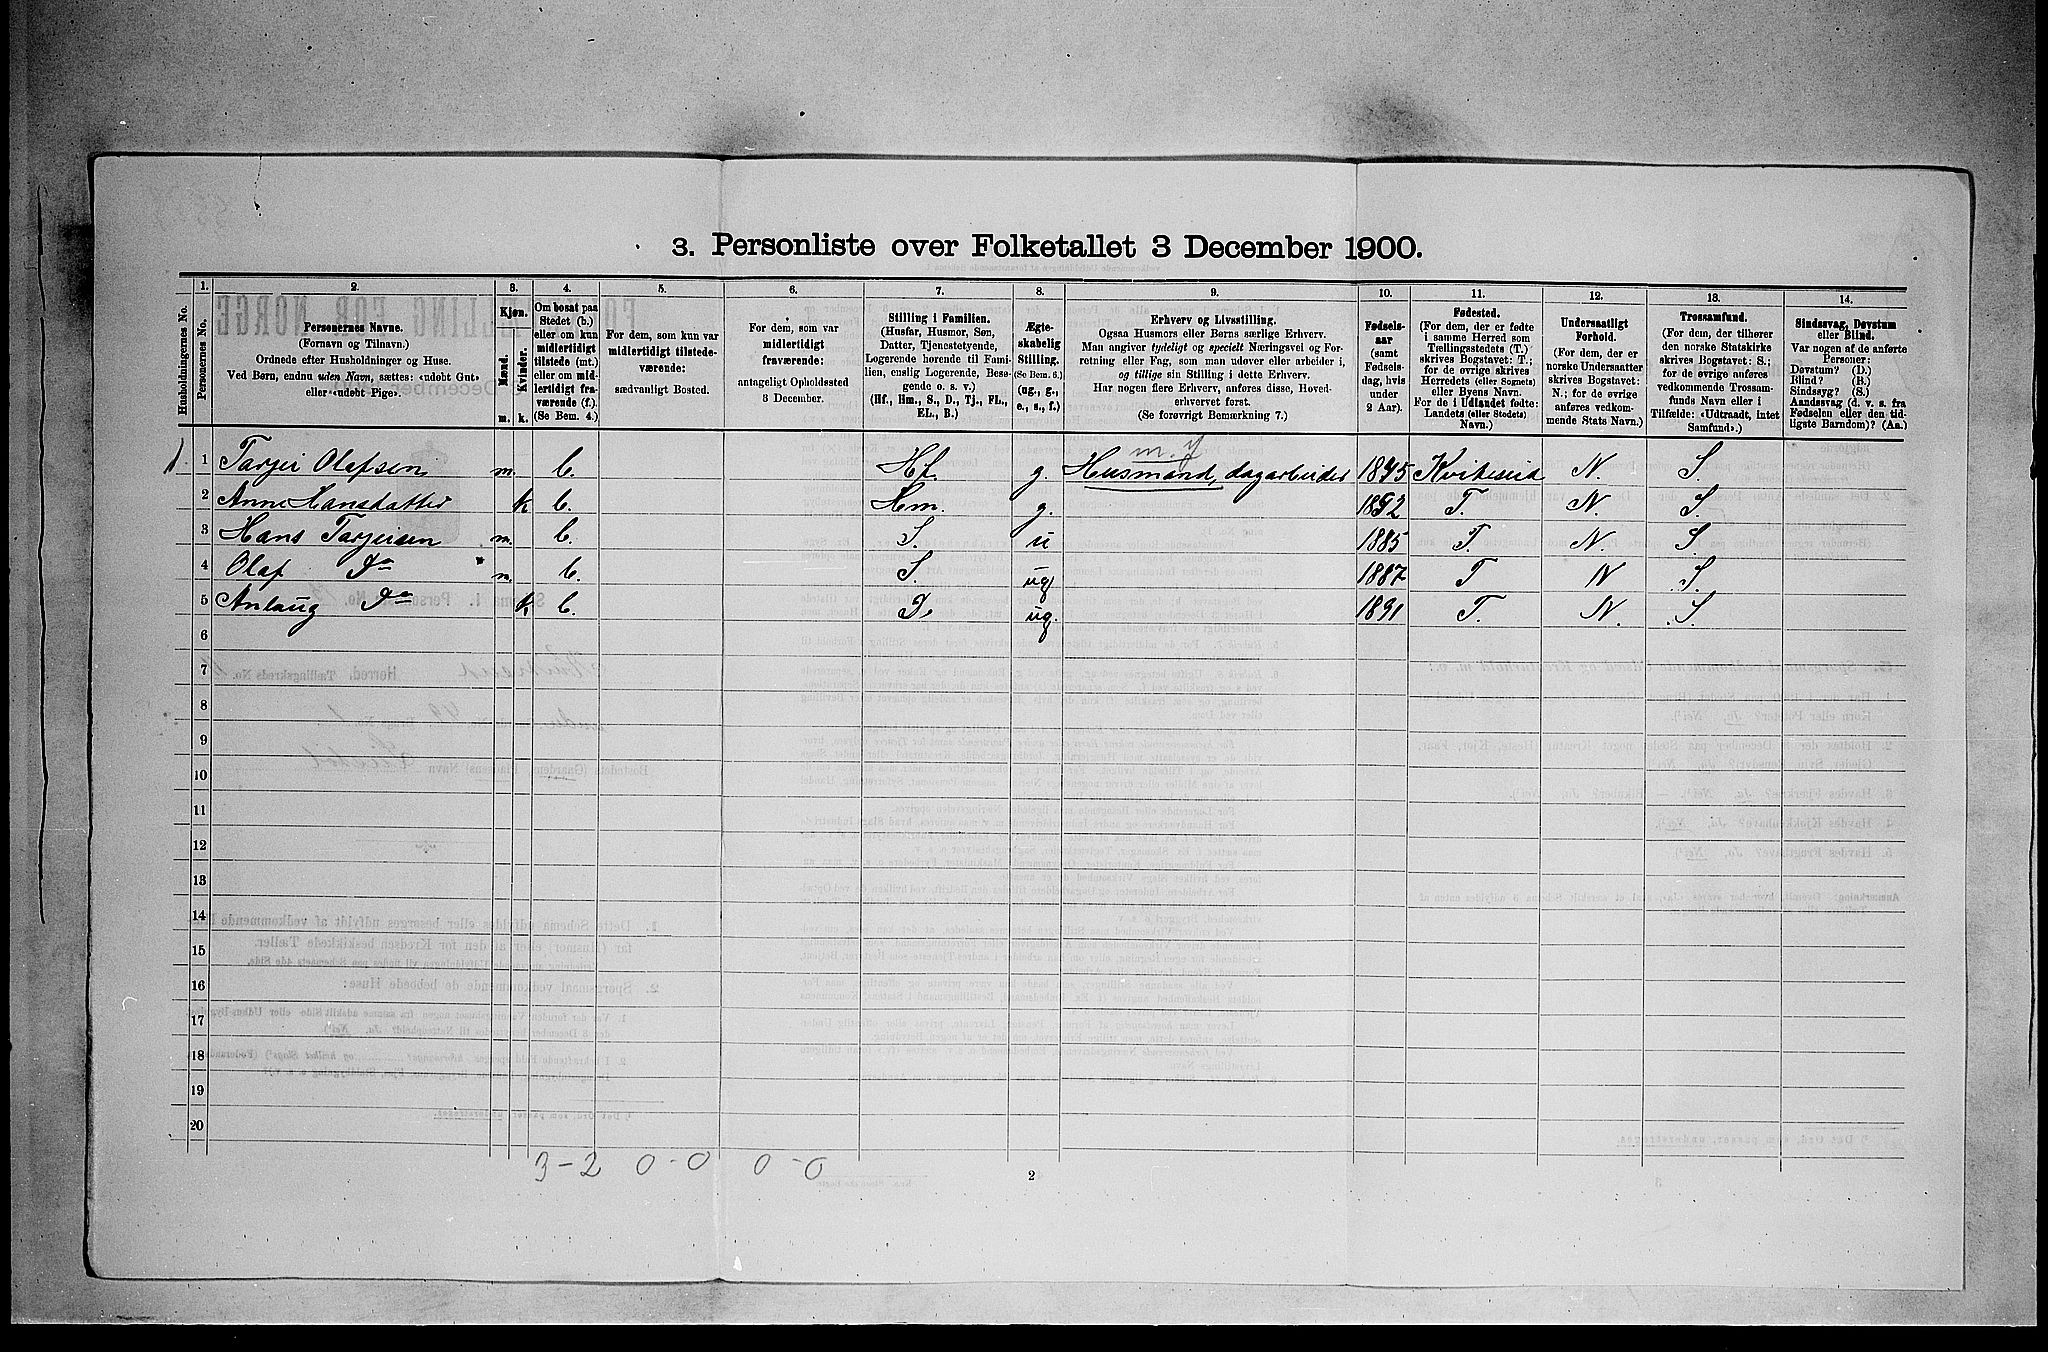 3. Personliste over Folketallet 3 December 1900.
Husholdningernes No.
1.
Personernes No.
2.
Personernes Navne.
(Fornavn og Tilnavn.)
Ordnede efter Husholdninger og Huse.
Ved Børn, endnu uden Navn, sættes: «udøbt Gut»
eller «udøbt Pige».
3.
Kjøn.
Mænd.
Kvinder.
m.
k.
4.
Om bosat paa
Stedet (b.)
eller om kun
midlertidigt
tilstede (mt.)
eller om mid-
lertidigt fra-
værende (f.).
(Se Bem. 4.)
5.
For dem, som kun var
midlertidigt tilstede-
værende:
sædvanligt Bosted.
6.
For dem, som var
midlertidigt
fraværende:
antageligt Opholdssted
3 December.
7.
Stilling i Familien.
(Husfar, Husmor, Søn,
Datter, Tjenestetyende,
Logerende hørende til Fami-
lien, enslig Logerende, Besø-
gende o. s. v.)
(Hf., Hm., S., D., Tj., FL.,
EL., B.)
8.
Ægte-
skabelig
Stilling.
(Se Bem. 6.)
(ug., g.,
e., s., f.)
9.
Erhverv og Livsstilling.
Ogsaa Husmors eller Børns særlige Erhverv.
Man angiver tydeligt og specielt Næringsvei og For-
retning eller Fag, som man udøver eller arbeider i,
og tillige sin Stilling i dette Erhverv.
Har nogen flere Erhverv, anføres disse, Hoved-
erhvervet først.
(Se forøvrigt Bemærkning 7.)
10.
Fødsels-
aar
(samt
Fødsels-
dag, hvis
under
2 Aar).
11.
Fødested.
(For dem, der er fødte
i samme Herred som
Tællingsstedets (T.)
skrives Bogstavet: T.;
for de øvrige skrives
Herredets (eller Sognets)
eller Byens Navn.
For de i Udlandet fødte:
Landets (eller Stedets)
Navn.)
12.
Undersaatligt
Forhold.
(For dem, der er
norske Undersaatter
skrives Bogstavet:
N.; for de øvrige
anføres vedkom-
mende Stats Navn.)
13.
Trossamfund.
(For dem, der tilhører
den norske Statskirke
skrives Bogstavet: S.;
for de øvrige anføres
vedkommende Trossam-
funds Navn eller i
Tilfælde: «Udtraadt, intet
Samfund».)
14.
Sindssvag, Døvstum
eller Blind.
Var nogen af de anførte
Personer:
Døvstum? (D.)
Blind? (B.)
Sindssyg? (S.)
Aandssvag (d. v. s. fra
Fødselen eller den tid-
ligste Barndom)? (Aa.)
m. J
1 Tarjei Olafsen m. b. Hf. g. Husmand, dagarbeider 1845 Kviteseid N. S.
2 Anne Hansdatter k b. Hm. g. 1852 T. N. S.
3 Hans Tarjeisen m. b. S. u 1885 T. N. S.
4 Olaf Do m. b. S. ug 1887 T N S.
5 Anlaug Do k b. D. ug. 1891 T. N. S.
6
7
8
9
10
11
12
13
14
15
16
17
18
19
20
3 - 2 0 - 0 0 - 0
2